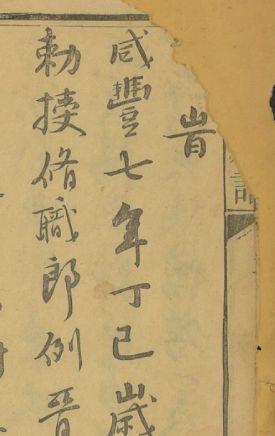 旹
咸豐七年丁巳歲
勅授脩職郎例晉